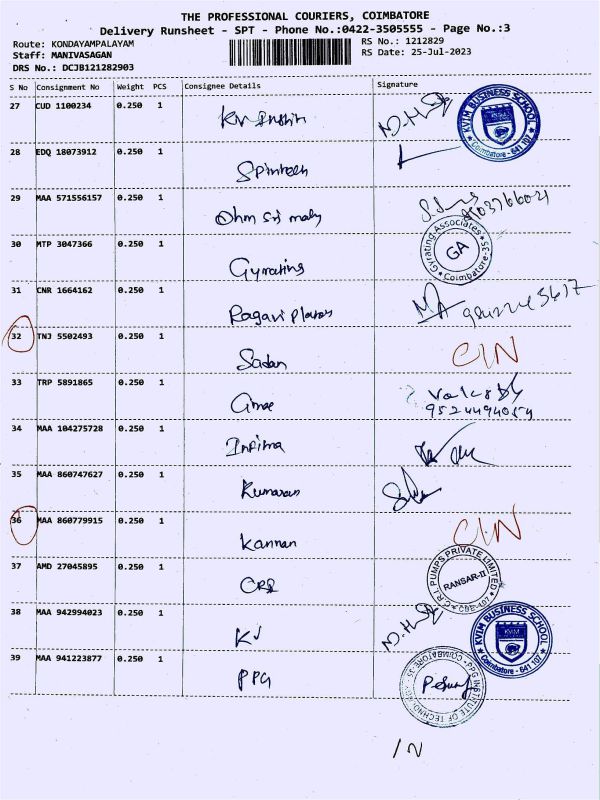 THE PROFESSIONAL COURIERS, COIMBATORE
Delivery Runsheet - SPT - Phone No.:0422-3505555 - Page No.:3
Route: KONDAYAMPALAYAM RS No.: 1212829
Staff: MANIVASAGAN RS Date: 25-Jul-2023
DRS No.: DCJB121282903
S No Consignment No Weight PCS Consignee Details Signature
27 CUD 1100234 0.250 1
KVIM BUSINESS SCHOOL
KVIM
Coimbatore - 641 107
28 EDQ 18073912 0.250 1
29 MAA 571556157 0.250 1
Ohm
30 MTP 3047366 0.250 1
Gyrating
Gyrating Associates
GA
Coimbatore-35
31 CNR 1664162 0.250 1
Ragavi
32 TNJ 5502493 0.250 1
Sadan
CIN
33 TRP 5891865 0.250 1
9524494054
34 MAA 104275728 0.250 1
35 MAA 860747627 0.250 1
Kumaran
36 MAA 860779915 0.250 1
Kannan
CIN
37 AMD 27045895 0.250 1
C.R.I. PUMPS PRIVATE LIMITED
RANSAR-II
38 MAA 942994023 0.250 1
KV
KVIM BUSINESS SCHOOL
KVIM
Coimbatore - 641 107
39 MAA 941223877 0.250 1
PPG
PPG INSTITUTE OF TECHNOLOGY
COIMBATORE-35